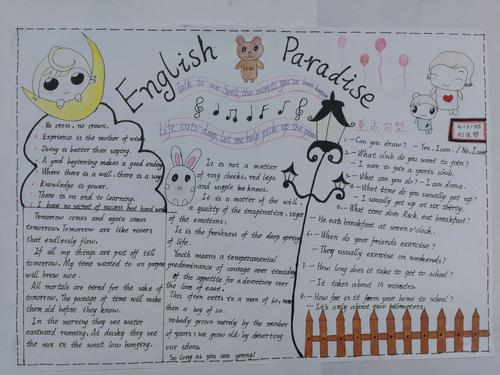 English Paradise
Talk to me Spell the secrets you've been keeping
Life cuts deep, Let me help pick up the pieces
No cross, no crown.
Experience is the mother of wisdom
Doing is better than saying.
A good beginning makes a good ending
Where there is a will, there is a way
Knowledge is power.
There is no end to learning.
I have no secret of success but hard work
Tomorrow comes and again comes
tomorrow Tomorrow are like rivers
that endlessly flow.
If all my things are put off till
tomorrow, My time wasted to on
will brew woe.
All mortals are tired for the sake of
tomorrow, The passage of time will make
them old before they know.
In the morning they see water
eastward running, At dusky they see
the sun in the west low hanging.
It is not a matter
of rosy cheeks, red lips
and supple knees.
It is a matter of the will,
a quality of the imagination, vigor
of the emotions;
It is the freshness of the deep spring
of life.
Youth means a temperamental
predominance of courage over timidity
of the appetite for adventure over
the love of ease,
This often exists in a man of 60, more
than a boy of 20.
nobody grows merely by the number
of years; we grow old by deserting
our ideas.
So long as you are young!
重点句型
1.-Can you draw? - Yes, I can. / No, I can't
2.-What club do you want to join?
-I want to join a sports club.
3.-What can you do? -I can dance.
4.-What time do you usually get up?
-I usually get up at six thirty.
5.-What time does Rick eat breakfast?
-He eats breakfast at seven o'clock.
6.-When do your friends exercise?
-They usually exercise on weekends!
7.-How long does it take to get to school?
-It takes about 15 minutes.
8.-How far is it from your home to school?
-It's only about two kilometers.